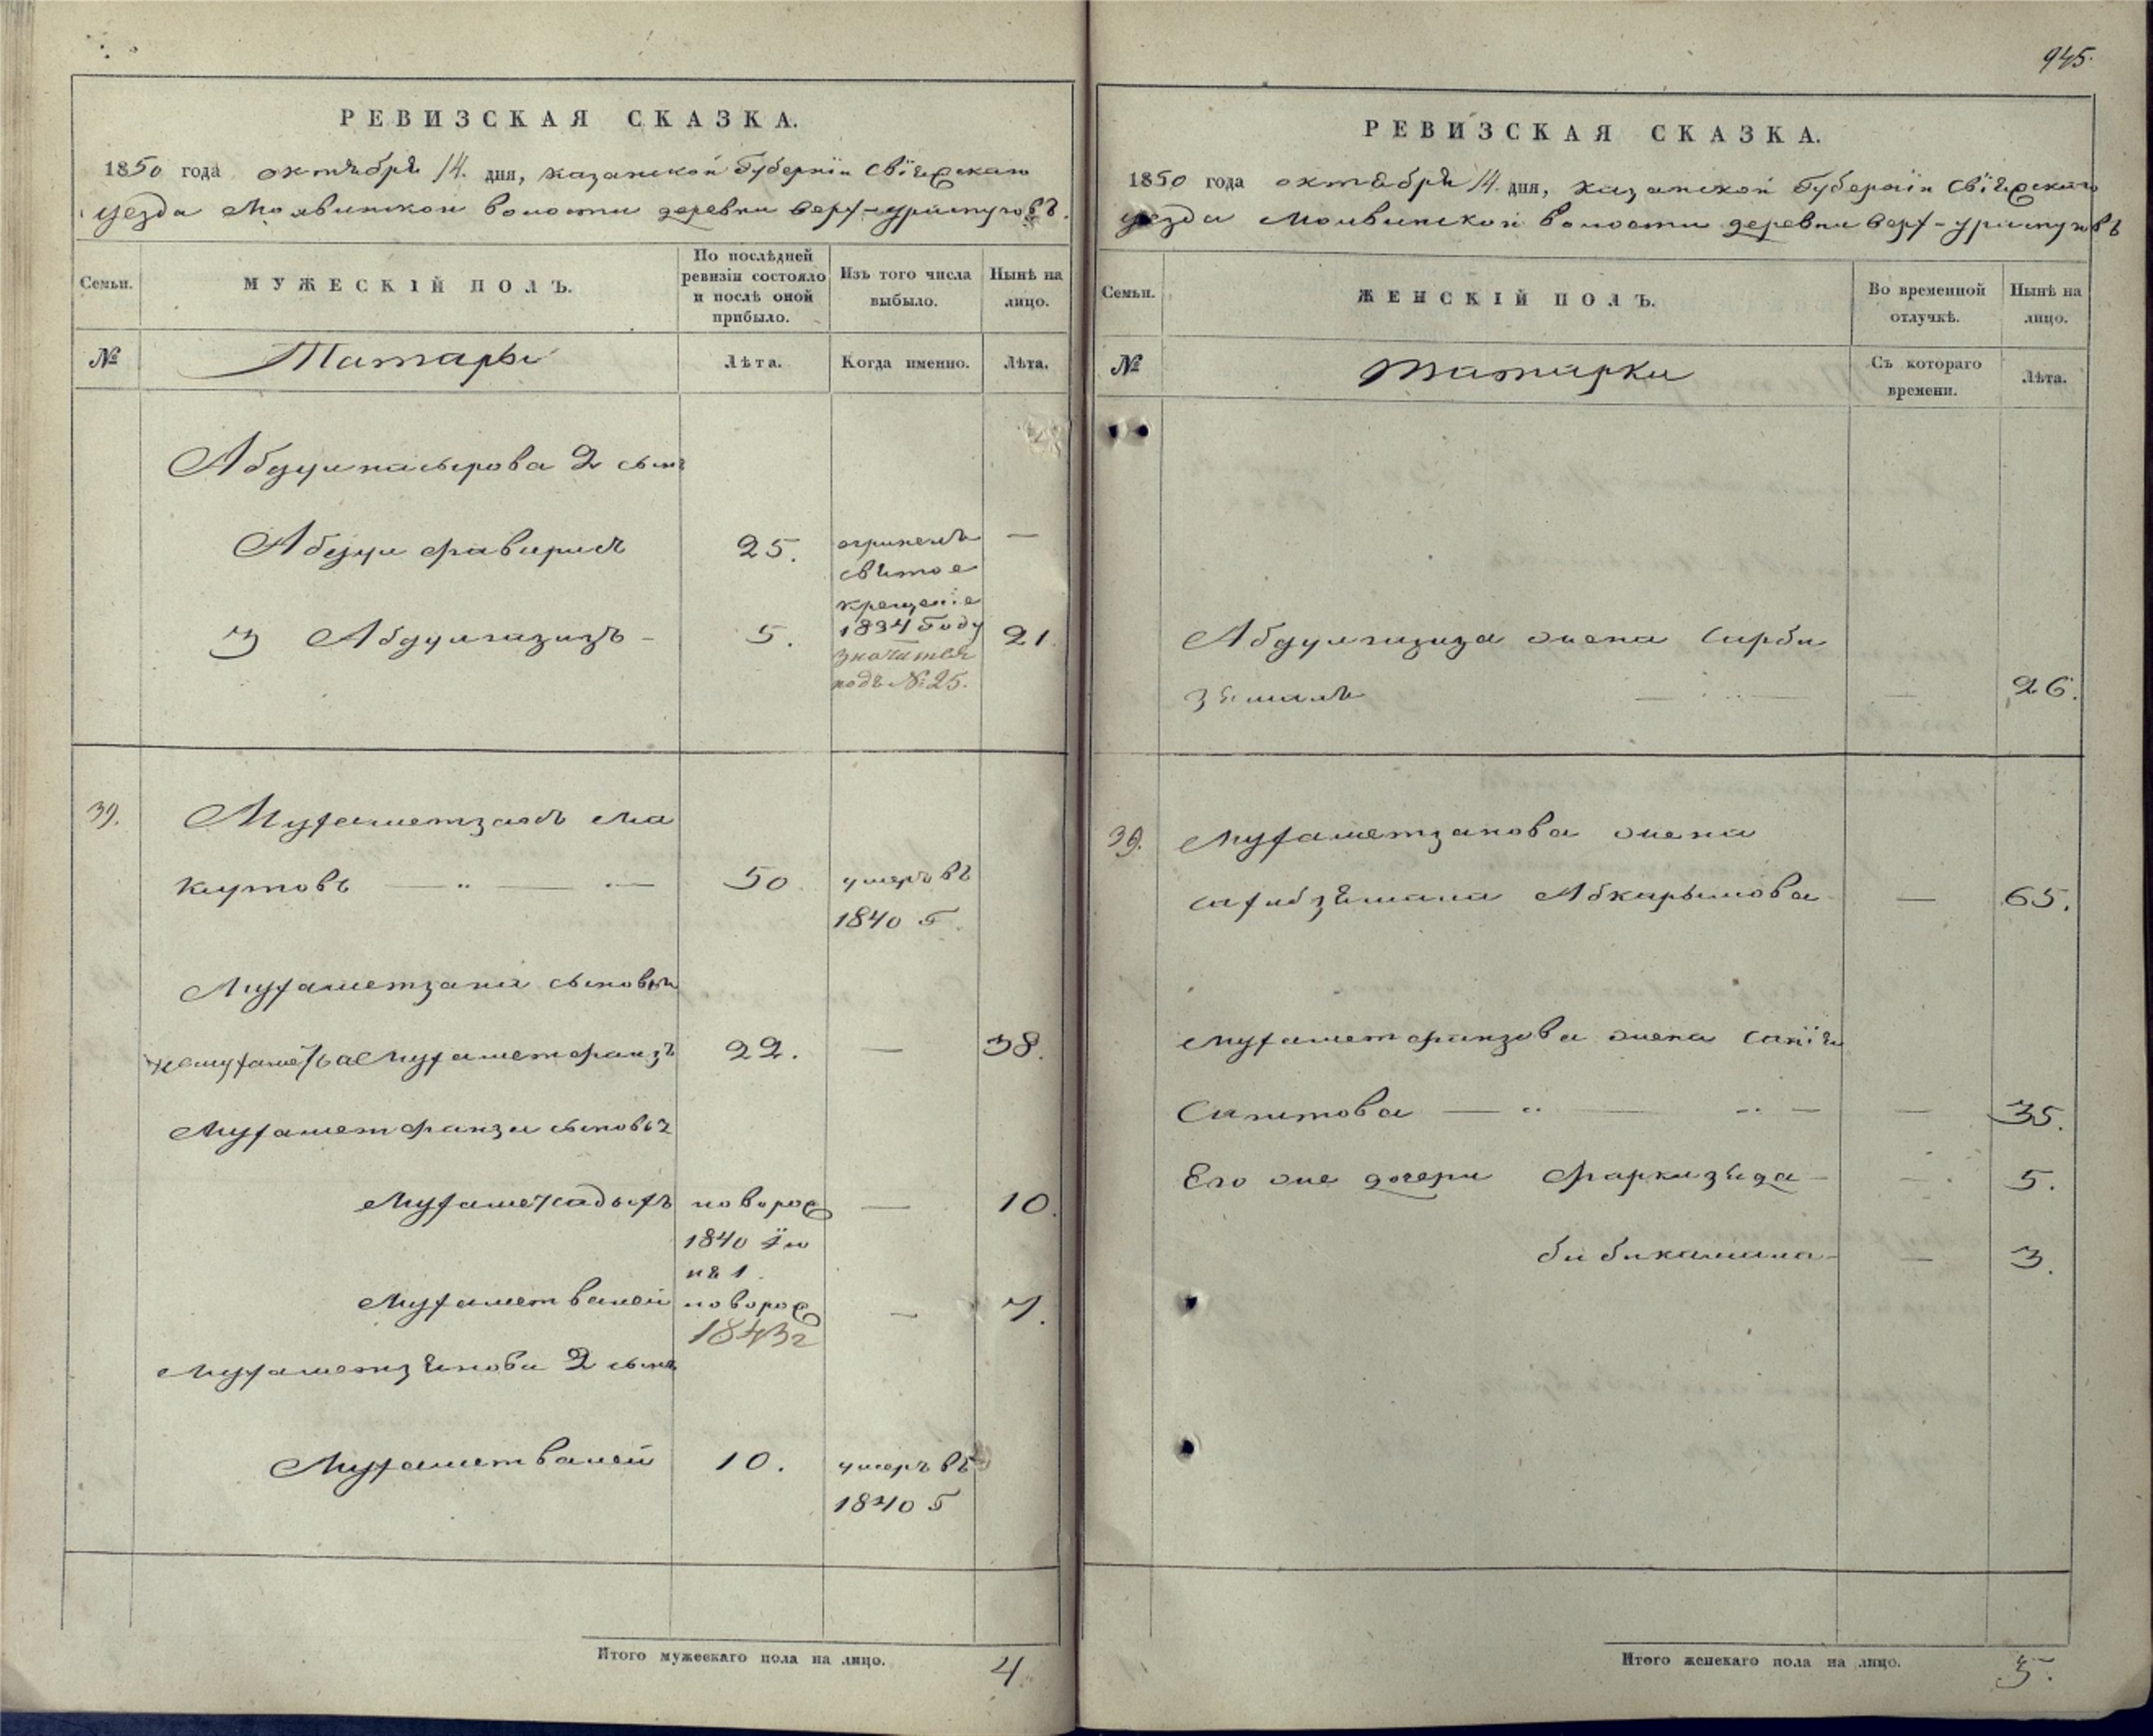 945.
РЕВИЗСКАЯ СКАЗКА.
1850 года октября 14. дня, казанской Губернїи свїяжскаго
уезда Молвинской волости деревни верх-
Семьи.
МУЖЕСКІЙ ПОЛЪ.
По послѣдней ревизіи состояло и послѣ оной прибыло.
Изъ того числа выбыло.
Нынѣ на лицо.
№
Татары
Лѣта.
Когда именно.
Лѣта.
Абдулнасырова 2 сынъ
Абдул 25. свѣтое —
крещеніе
1834 Году
3 Абдулгазизъ - 5. 21.
значится
подъ № 25.
39. Мухаметзянъ Ма
кутовъ — 50 умеръ въ
1840 Г.
Мухаметзяна сыновья
Мухаметфаизъ 22. — 38.
Мухаметфаиза сыновья
Мухаметсадыкъ новорож — 10.
1840 Їю
ня 1.
Мухаметвалей новорож — 7.
1843 г
Мухаметзянова 2 сынъ
Мухаметвалей 10. умеръ въ
1840 Г
Итого мужескаго пола на лицо. 4
РЕВИЗСКАЯ СКАЗКА.
1850 года октября 14. дня, казанской Губернїи свїяжскаго
уезда Молвинской волости деревни верх-
Семьи.
ЖЕНСКІЙ ПОЛЪ.
Во временной отлучкѣ.
Нынѣ на лицо.
№
Татарки
Съ котораго времени.
Лѣта.
Абдулгазиза жена Сарби
земалъ — — 26.
39. Мухаметзянова жена
Абкарымова — 65.
Мухаметфаизова жена Санїя
Сагитова — — 35.
Его же дочери Фаркизяда — — 5.
бибикамала — — 3.
Итого женскаго пола на лицо. 5.